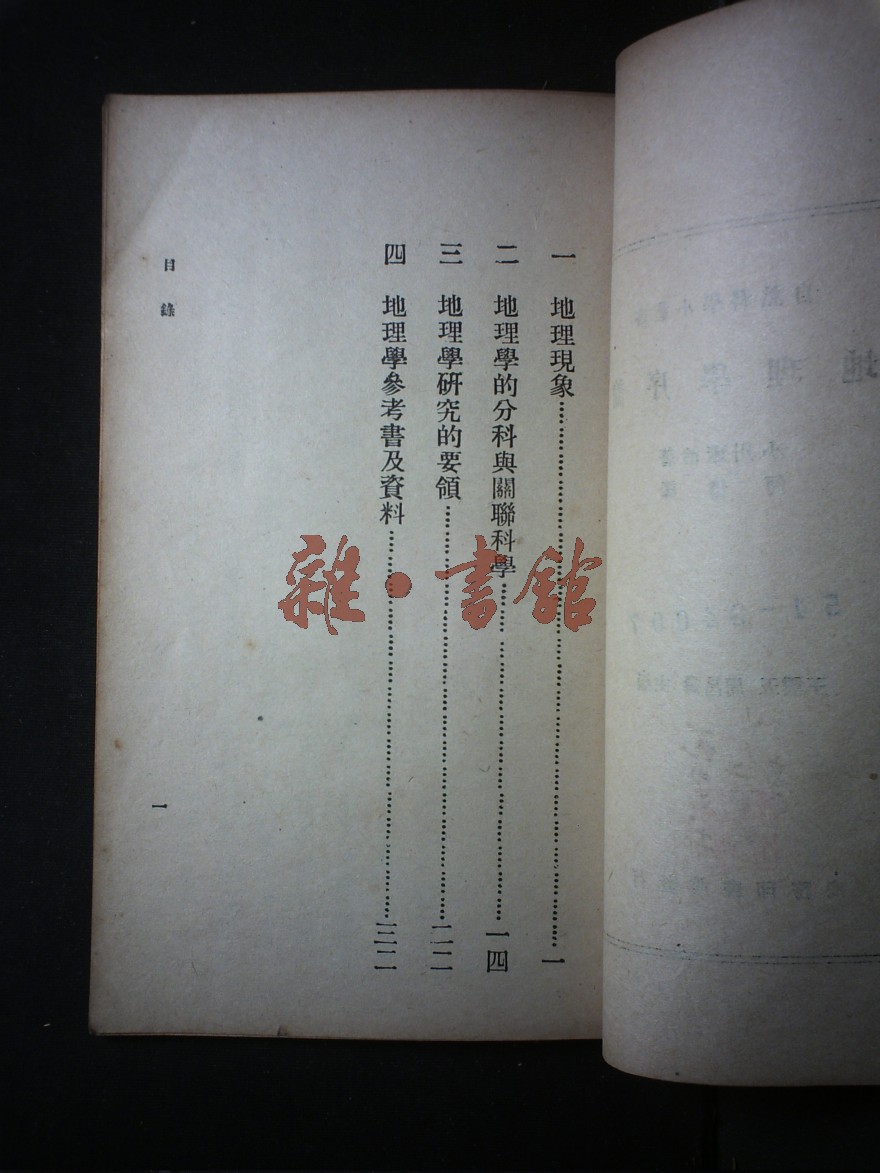 一　地理現象……一
二　地理學的分科與關聯科學……一四
三　地理學研究的要領……二二
四　地理學參考書及資料……三二
目錄
一
雜·書館